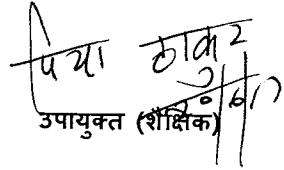 पिया ठाकुर
उपायुक्त (शैक्षिक)